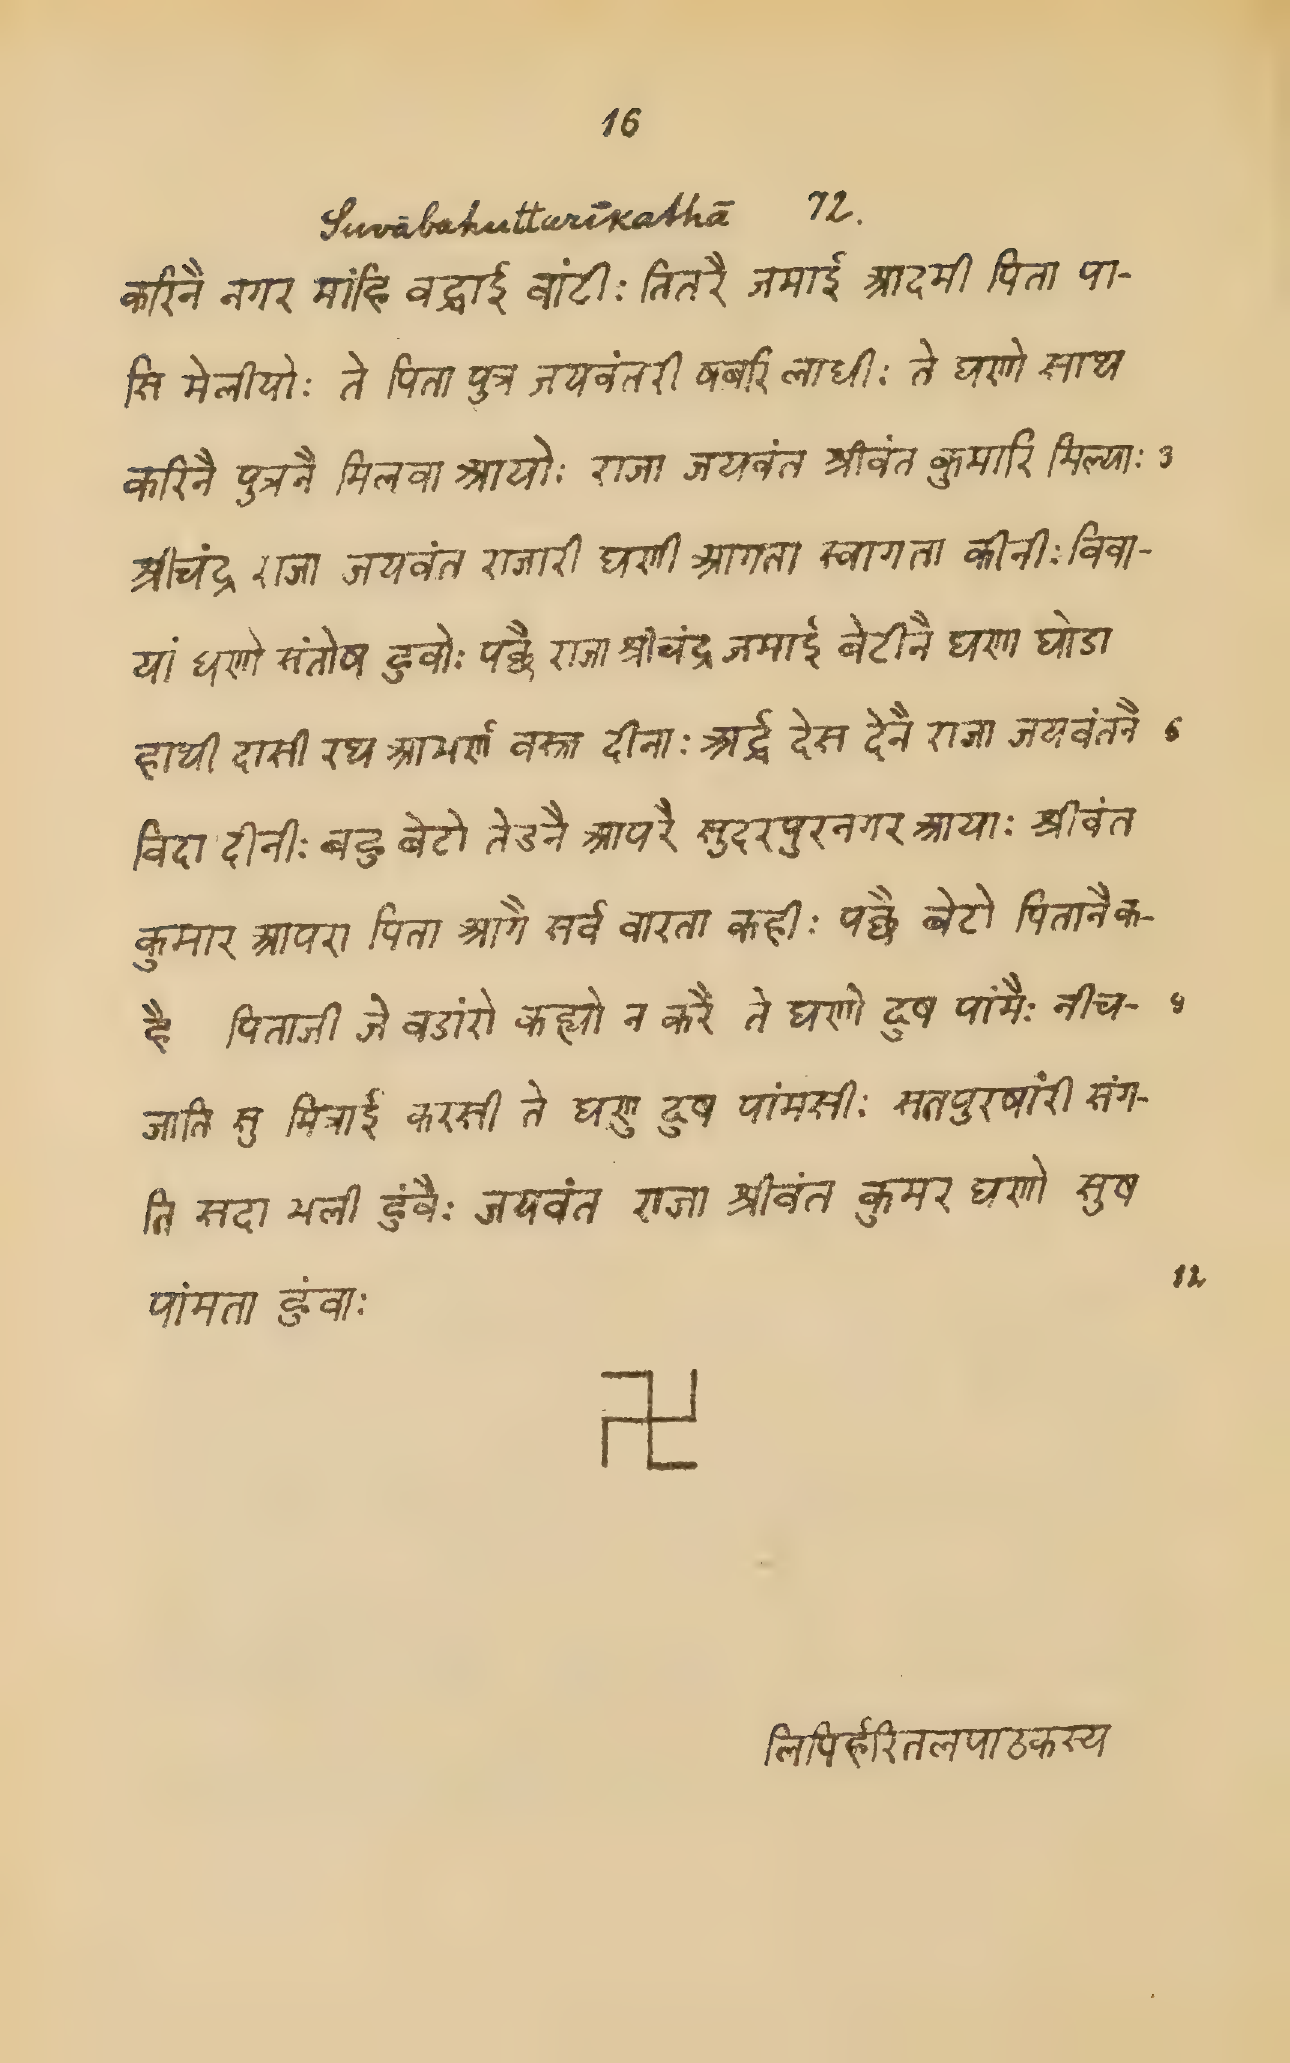 16
Suvābahuttarīkathā 72.
करिनै नगर मांहि वद्धाई बांटी: तितरै जमाई आदमी पिता पा-
सि मेलीयो: ते पिता पुत्र जयवंतरी षबरि लाधी: ते घणे साथ
करिनै पुत्रनै मिलवा आयो: राजा जयवंत श्रीवंत कुमारि मिल्या: 3
श्रीचंद्र राजा जयवंत राजारी घणी आगता स्वागता कीनी: विवा-
यां घणे संतोष हुवो: पछै राजा श्रीचंद्र जमाई बेटीनै घणा घोडा
हाथी दासी रथ आभर्ण वस्त्र दीना: अर्द्ध देस देनै राजा जयवंतनै 6
विदा दीनी: बहु बेटो तेडनै आपरै सुदरपुरनगर आया: श्रीवंत
कुमार आपरा पिता आगै सर्व वारता कही: पछै बेटो पितानै क-
है पिताजी जे वडांरो कह्यो न करैं ते घणो दुष पांमै: नीच- 9
जाति सु मित्राई करसी ते घणु दुष पांमसी: सतपुरषांरी संग-
ति सदा भली हुंवै: जयवंत राजा श्रीवंत कुमर घणो सुष
पांमता हुंवा: 12
लिपिर्हरितलपाठकस्य